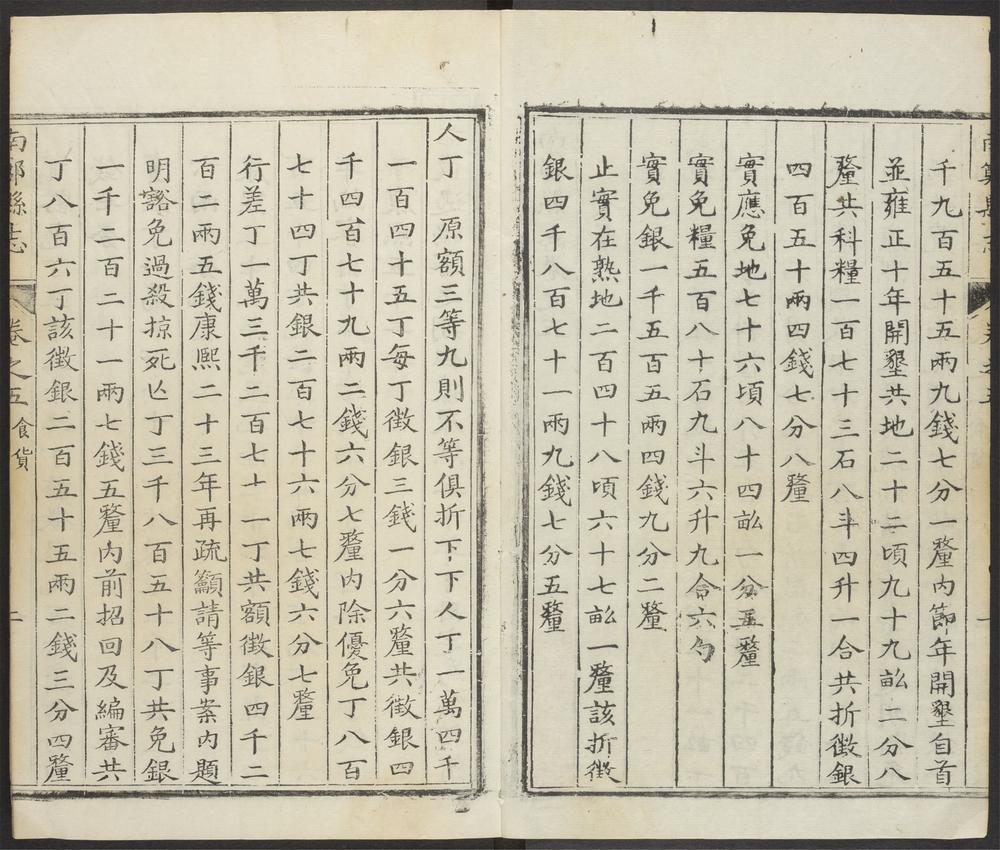 千九百五十五兩九錢七分一釐內節年開墾自首
並雍正十年開墾共地二十二頃九十九畝二分八
釐共科糧一百七十三石八斗四升一合共折徵銀
四百五十兩四錢七分八釐
實應免地七十六頃八十四畝一分五釐
實免糧五百八十石九斗六升九合六勺
實免銀一千五百五兩四錢九分二釐
止實在熟地二百四十八頃六十七畝一釐該折徵
銀四千八百七十一兩九錢七分五釐
人丁 原額三等九則不等俱折下下人丁一萬四千
一百四十五丁每丁徵銀三錢一分六釐共徵銀四
千四百七十九兩二錢六分七釐內除優免丁八百
七十四丁共銀二百七十六兩七錢六分七釐
行差丁一萬三千二百七十一丁共額徵銀四千二
百二兩五錢康熙二十三年再疏籲請等事案內題
明豁免過殺掠死亾丁三千八百五十八丁共免銀
一千二百二十一兩七錢五釐內前招回及編審共
丁八百六丁該徵銀二百五十五兩二錢三分四釐
縣志 卷之五 食貨 二